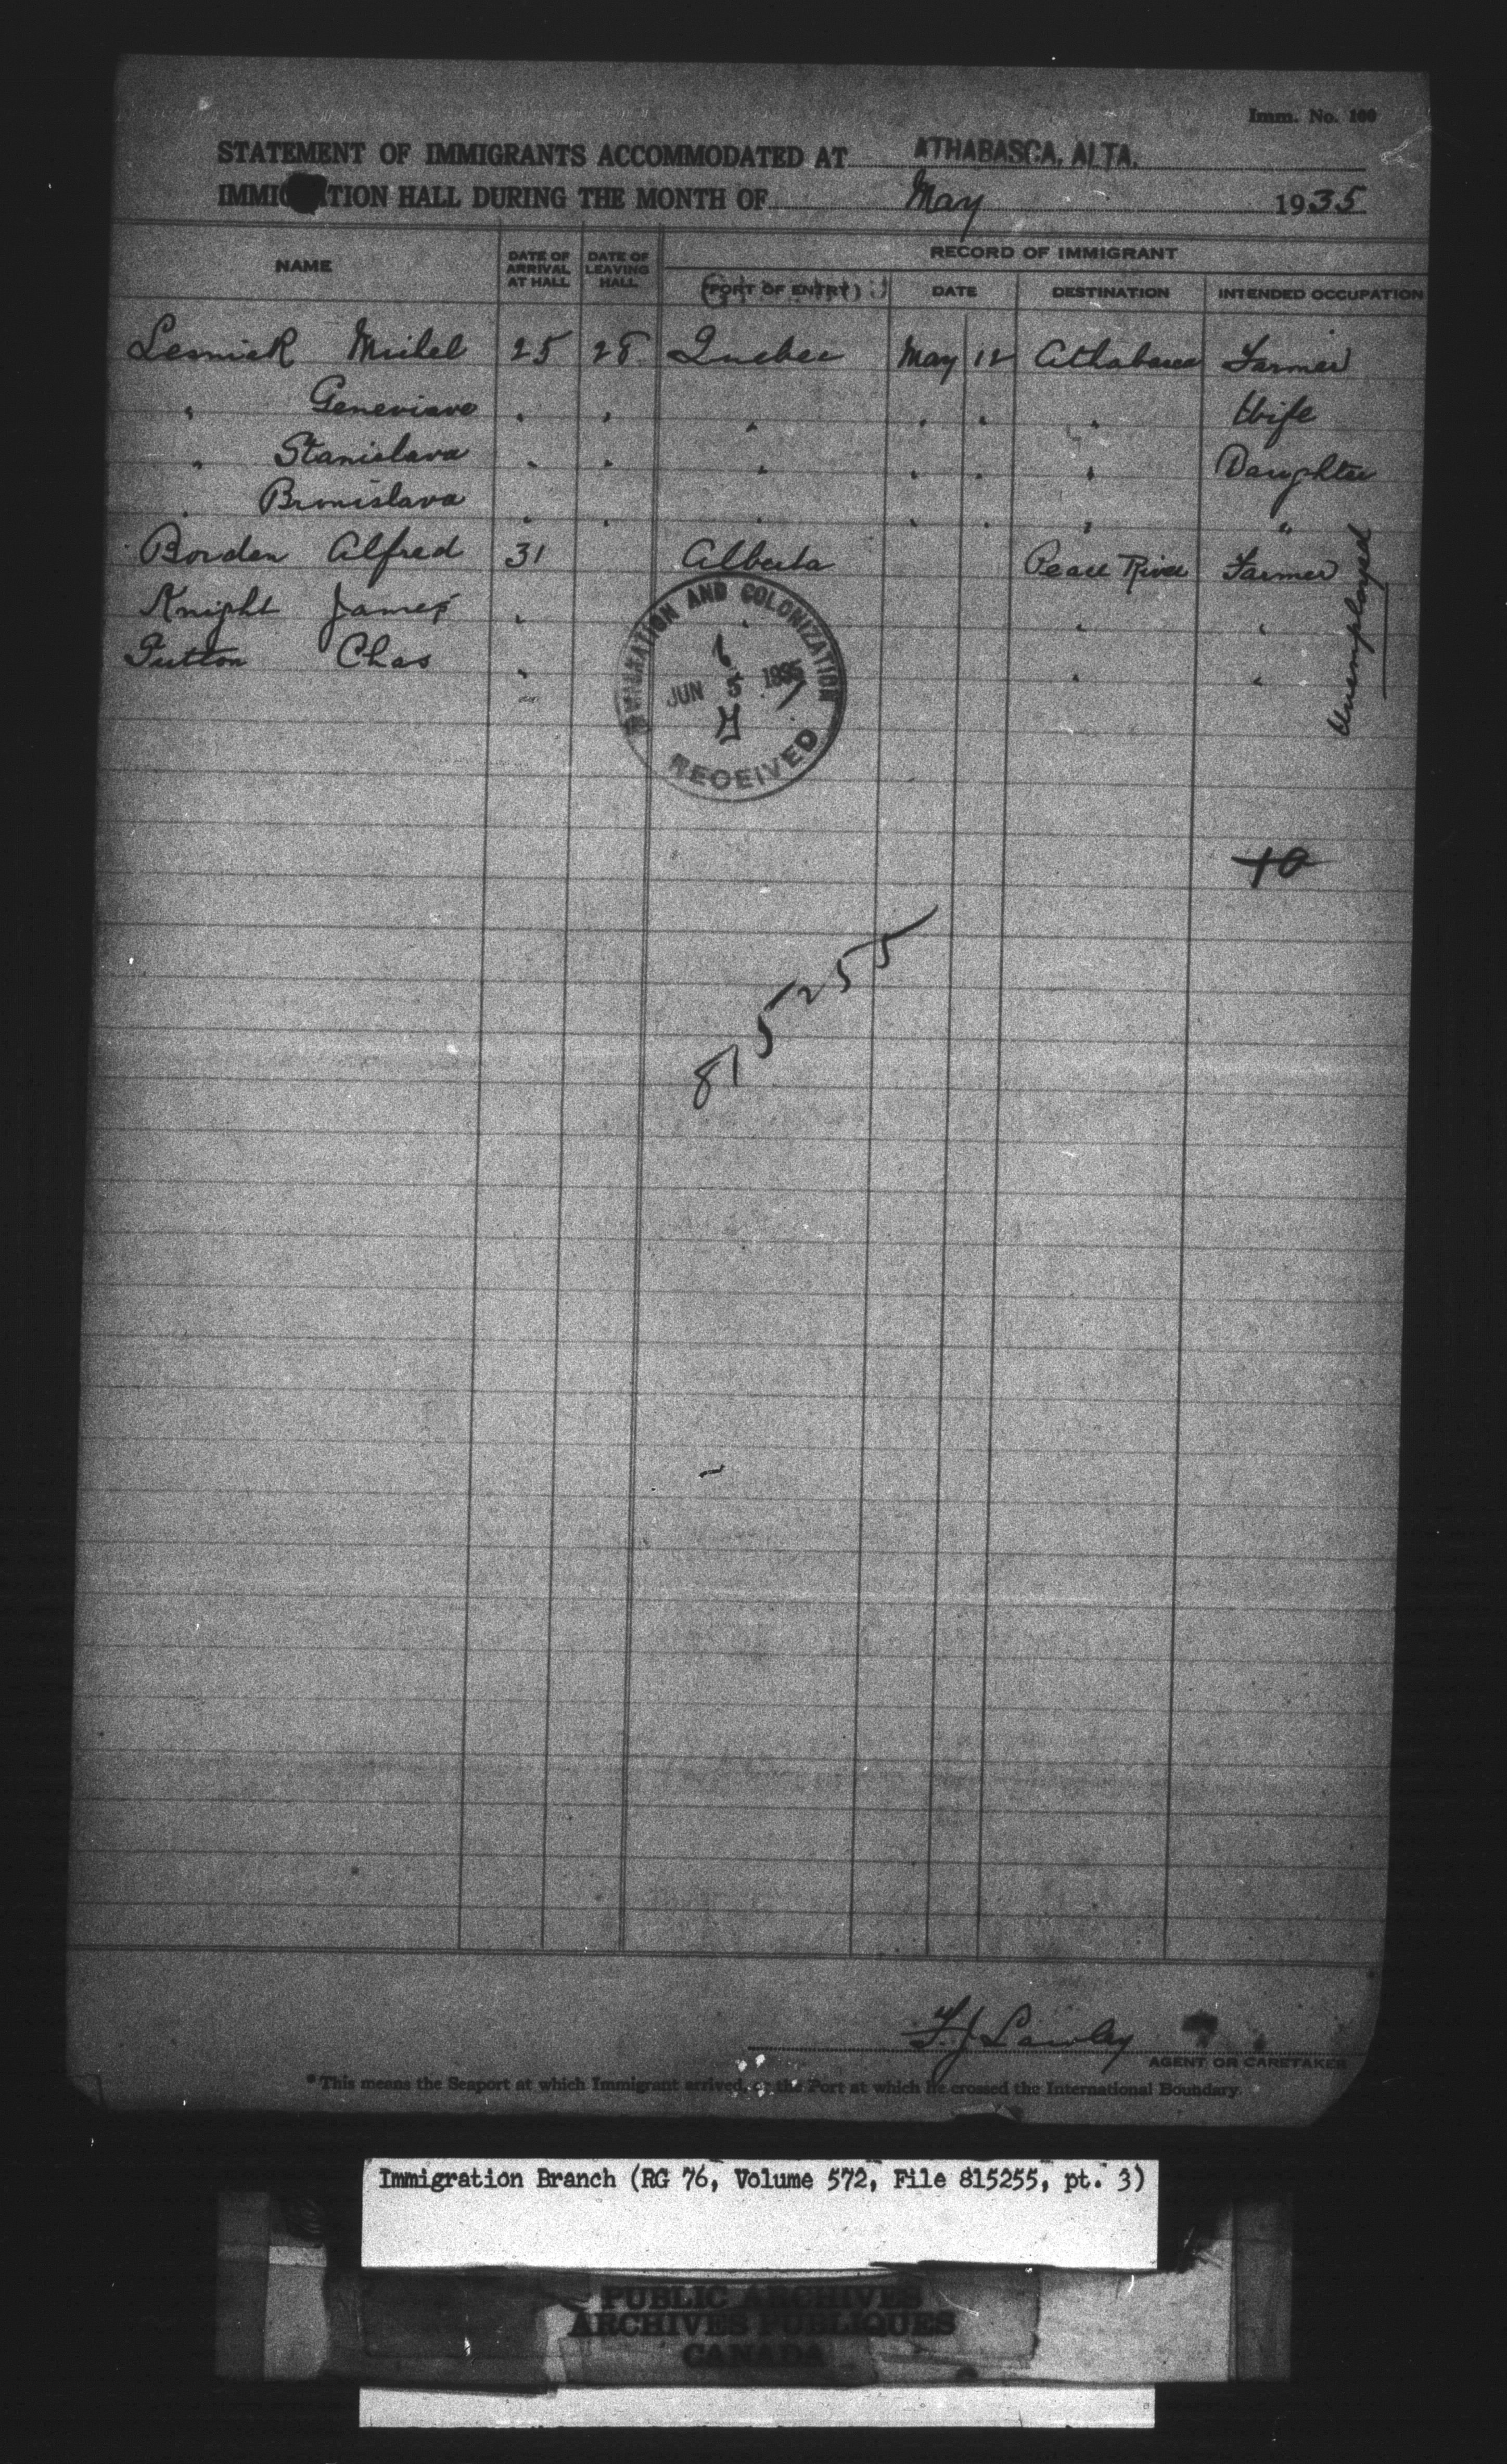 Imm. No. 100
STATEMENT OF IMMIGRANTS ACCOMMODATED AT ATHABASCA, ALTA.
IMMIG TION HALL DURING THE MONTH OF May 1935
NAME DATE OF ARRIVAL AT HALL DATE OF LEAVING HALL RECORD OF IMMIGRANT
(PORT OF ENTRY) DATE DESTINATION INTENDED OCCUPATION
Lesnick Michel 25 28 Quebec May 12 Athabasca Farmer
" Genevieve " " " " " " Wife
" Stanislava " " " " " " Daughter
" Bronislava " " " " " " "
Borden Alfred 31 Alberta Peace River Farmer
Knight James " " " "
Chas " " "
Unemployed
IMMIGRATION AND COLONIZATION
JUN 5 1935
RECEIVED
10
815255
F.J. Lawley
AGENT OR CARETAKER
*This means the Seaport at which Immigrant arrived, or the Port at which he crossed the International Boundary.
Immigration Branch (RG 76, Volume 572, File 815255, pt. 3)
PUBLIC ARCHIVES
ARCHIVES PUBLIQUES
CANADA